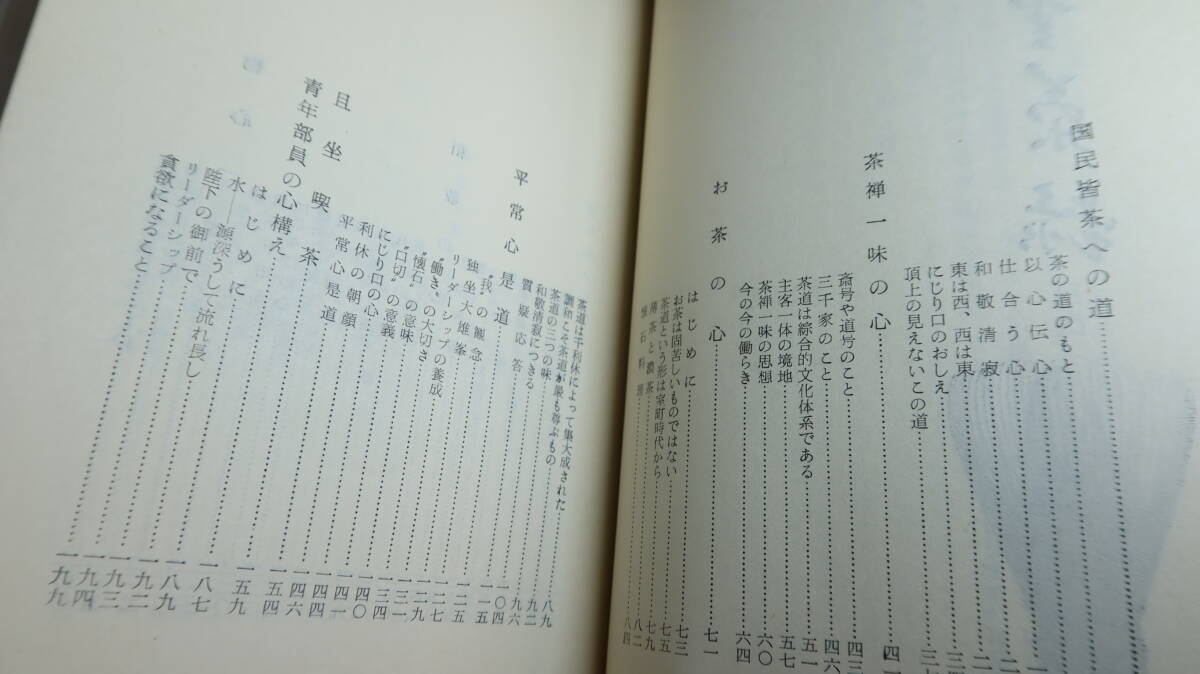 国民皆茶への道
茶の道のもと
以心伝心
仕合う心
和敬清寂
東は西、西は東
にじり口のおしえ
頂上の見えないこの道
茶禅一味の心 四一
斎号や道号のこと 四三
三千家のこと 四六
茶道は綜合的文化体系である 五一
主客一体の境地 五七
茶禅一味の思想 六〇
今の今の働らき 六四
お茶の心 七一
はじめに 七三
お茶は固苦しいものではない 七五
茶道という形は室町時代から 七九
薄茶と濃茶 八二
懐石料理 八四
茶道は千利休によって集大成された 八九
調和こそ茶道が最も尊ぶもの 九二
茶道の三つの味 九六
和敬清寂につきる 一〇四
質疑応答 一一五
平常心是道 一二五
〝我〟の観念 一二七
独坐大雄峯 一二九
リーダーシップの養成 一三一
〝働き〟の大切さ 一三四
〝懐石〟の意味 一四〇
〝口切〟の意義 一四一
にじり口の心 一四四
利休の朝顔 一四六
平常心是道 一五四
且坐喫茶 一五九
青年部員の心構え 一八七
はじめに 一八九
水——源深うして流れ長し 一九二
陛下の御前で 一九三
リーダーシップ 一九四
貪欲になること 一九九